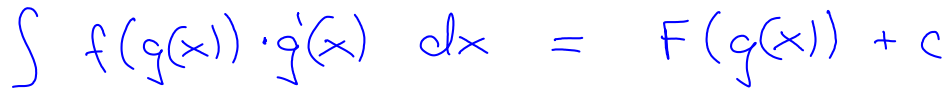 ∫ f(g(x)) · g'(x) dx = F(g(x)) + c